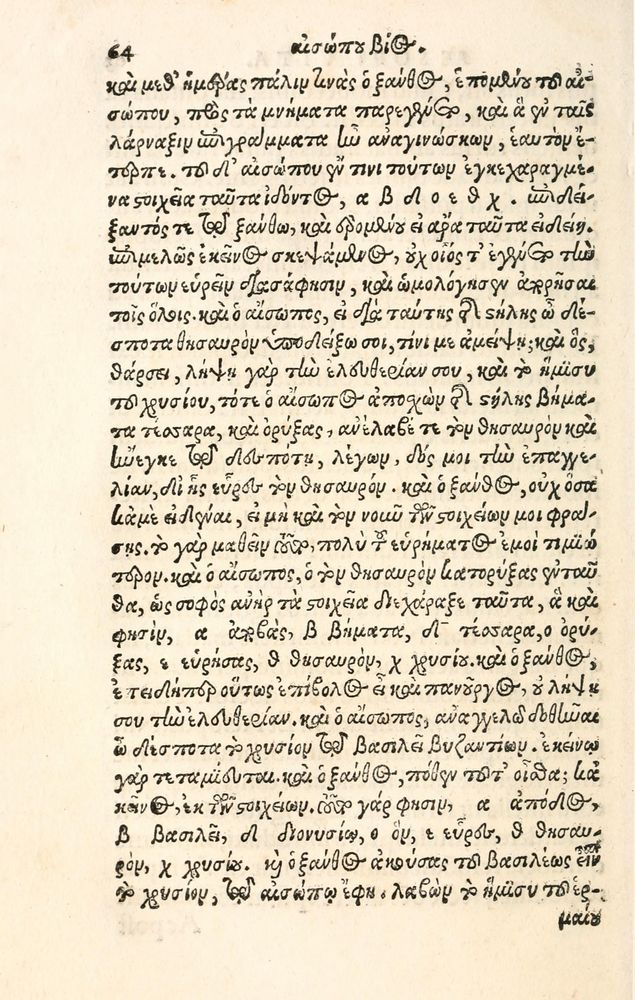 64 αἰσώπου βίος.
καὶ μεθ' ἡμέρας πάλιν τινὰς ὁ ξάνθος, ἑπομένου τοῦ αἰ-
σώπου, πρὸς τὰ μνήματα παρεγένετο, καὶ ἃ ἐν ταῖς
λάρναξιν ἐπιγράμματα ἦν ἀναγινώσκων, ἑαυτὸν ἔ-
τερπε. τοῦ δ' αἰσώπου ἔν τινι τούτων ἐγκεχαραγμέ-
να στοιχεῖα ταῦτα ἰδόντος, α β δ ο ε θ χ. ἐπιδεί-
ξαντός τε τῷ ξάνθῳ, καὶ ἐρομένου εἰ ἄρα ταῦτα εἰδείη.
ἐπιμελῶς ἐκεῖνος σκεψάμενος, οὐχ οἷός τ' ἐγένετο τὴν
τούτων εὑρεῖν διασάφησιν, καὶ ὡμολόγησεν ἀπορῆσαι
τοῖς ὅλοις. καὶ ὁ αἴσωπος, εἰ διὰ ταύτης τῆς στήλης ὦ δέ-
σποτα θησαυρὸν ὑποδείξω σοι, τίνι με ἀμείψῃ; καὶ ὃς,
θάρσει, λήψῃ γὰρ τὴν ἐλευθερίαν σου, καὶ τὸ ἥμισυ
τοῦ χρυσίου, τότε ὁ αἴσωπος ἀποχὼν τῆς στήλης βήμα-
τα τέσσαρα, καὶ ὀρύξας, ἀνέλαβέ τε τὸν θησαυρὸν καὶ
ἤνεγκε τῷ δεσπότῃ, λέγων, δός μοι τὴν ἐπαγγε-
λίαν, δι' ἧς εὗρες τὸν θησαυρόν. καὶ ὁ ξάνθος, οὐχ ὅσα
κἀμὲ εἰδέναι, εἰ μὴ καὶ τὸν νοῦν τῶν στοιχείων μοι φρά-
σῃς. τὸ γὰρ μαθεῖν τοῦτο, πολὺ τοῦ εὑρήματος ἐμοὶ τιμιώ
τερον. καὶ ὁ αἴσωπος, ὁ τὸν θησαυρὸν κατορύξας ἐνταῦ
θα, ὡς σοφὸς ἀνὴρ τὰ στοιχεῖα διεχάραξε ταῦτα, ἃ καὶ
φησὶν, α ἀποβὰς, β βήματα, δ τέσσαρα, ο ὀρύ-
ξας, ε εὑρήσεις, θ θησαυρὸν, χ χρυσίου. καὶ ὁ ξάνθος,
ἐπειδήπερ οὕτως ἐπίβολος εἶ καὶ πανοῦργος, οὐ λήψῃ
σου τὴν ἐλευθερίαν. καὶ ὁ αἴσωπος, ἀναγγελῶ δοθῆναι
ὦ δέσποτα τὸ χρυσίον τῷ βασιλεῖ βυζαντίων. ἐκείνῳ
γὰρ τεταμίευται. καὶ ὁ ξάνθος, πόθεν τοῦτ' οἶσθα; κἀ
κεῖνος, ἐκ τῶν στοιχείων. τοῦτο γάρ φησιν, α ἀπόδος,
β βασιλεῖ, δ διονυσίῳ, ο ὃν, ε εὗρες, θ θησαυ-
ρὸν, χ χρυσίου. καὶ ὁ ξάνθος ἀκούσας τοῦ βασιλέως εἶναι
τὸ χρυσίον, τῷ αἰσώπῳ ἔφη. λαβὼν τὸ ἥμισυ τοῦ ἑρ-
μαίου